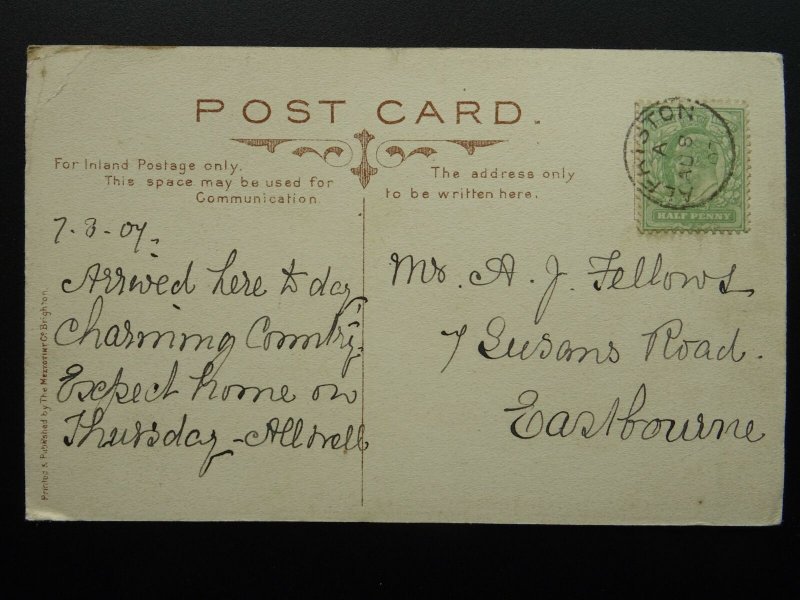 POST CARD.
For Inland Postage only.
This space may be used for
Communication
The address only
to be written here.
ALFRISTON
A
AU 8
07
HALF PENNY
7.8.07.
Arrived here to day
Charming Country.
Expect home on
Thursday - All well
Mr. A. J. Fellows
7 Susans Road.
Eastbourne
Printed & Published by The Mezzotint Co Brighton